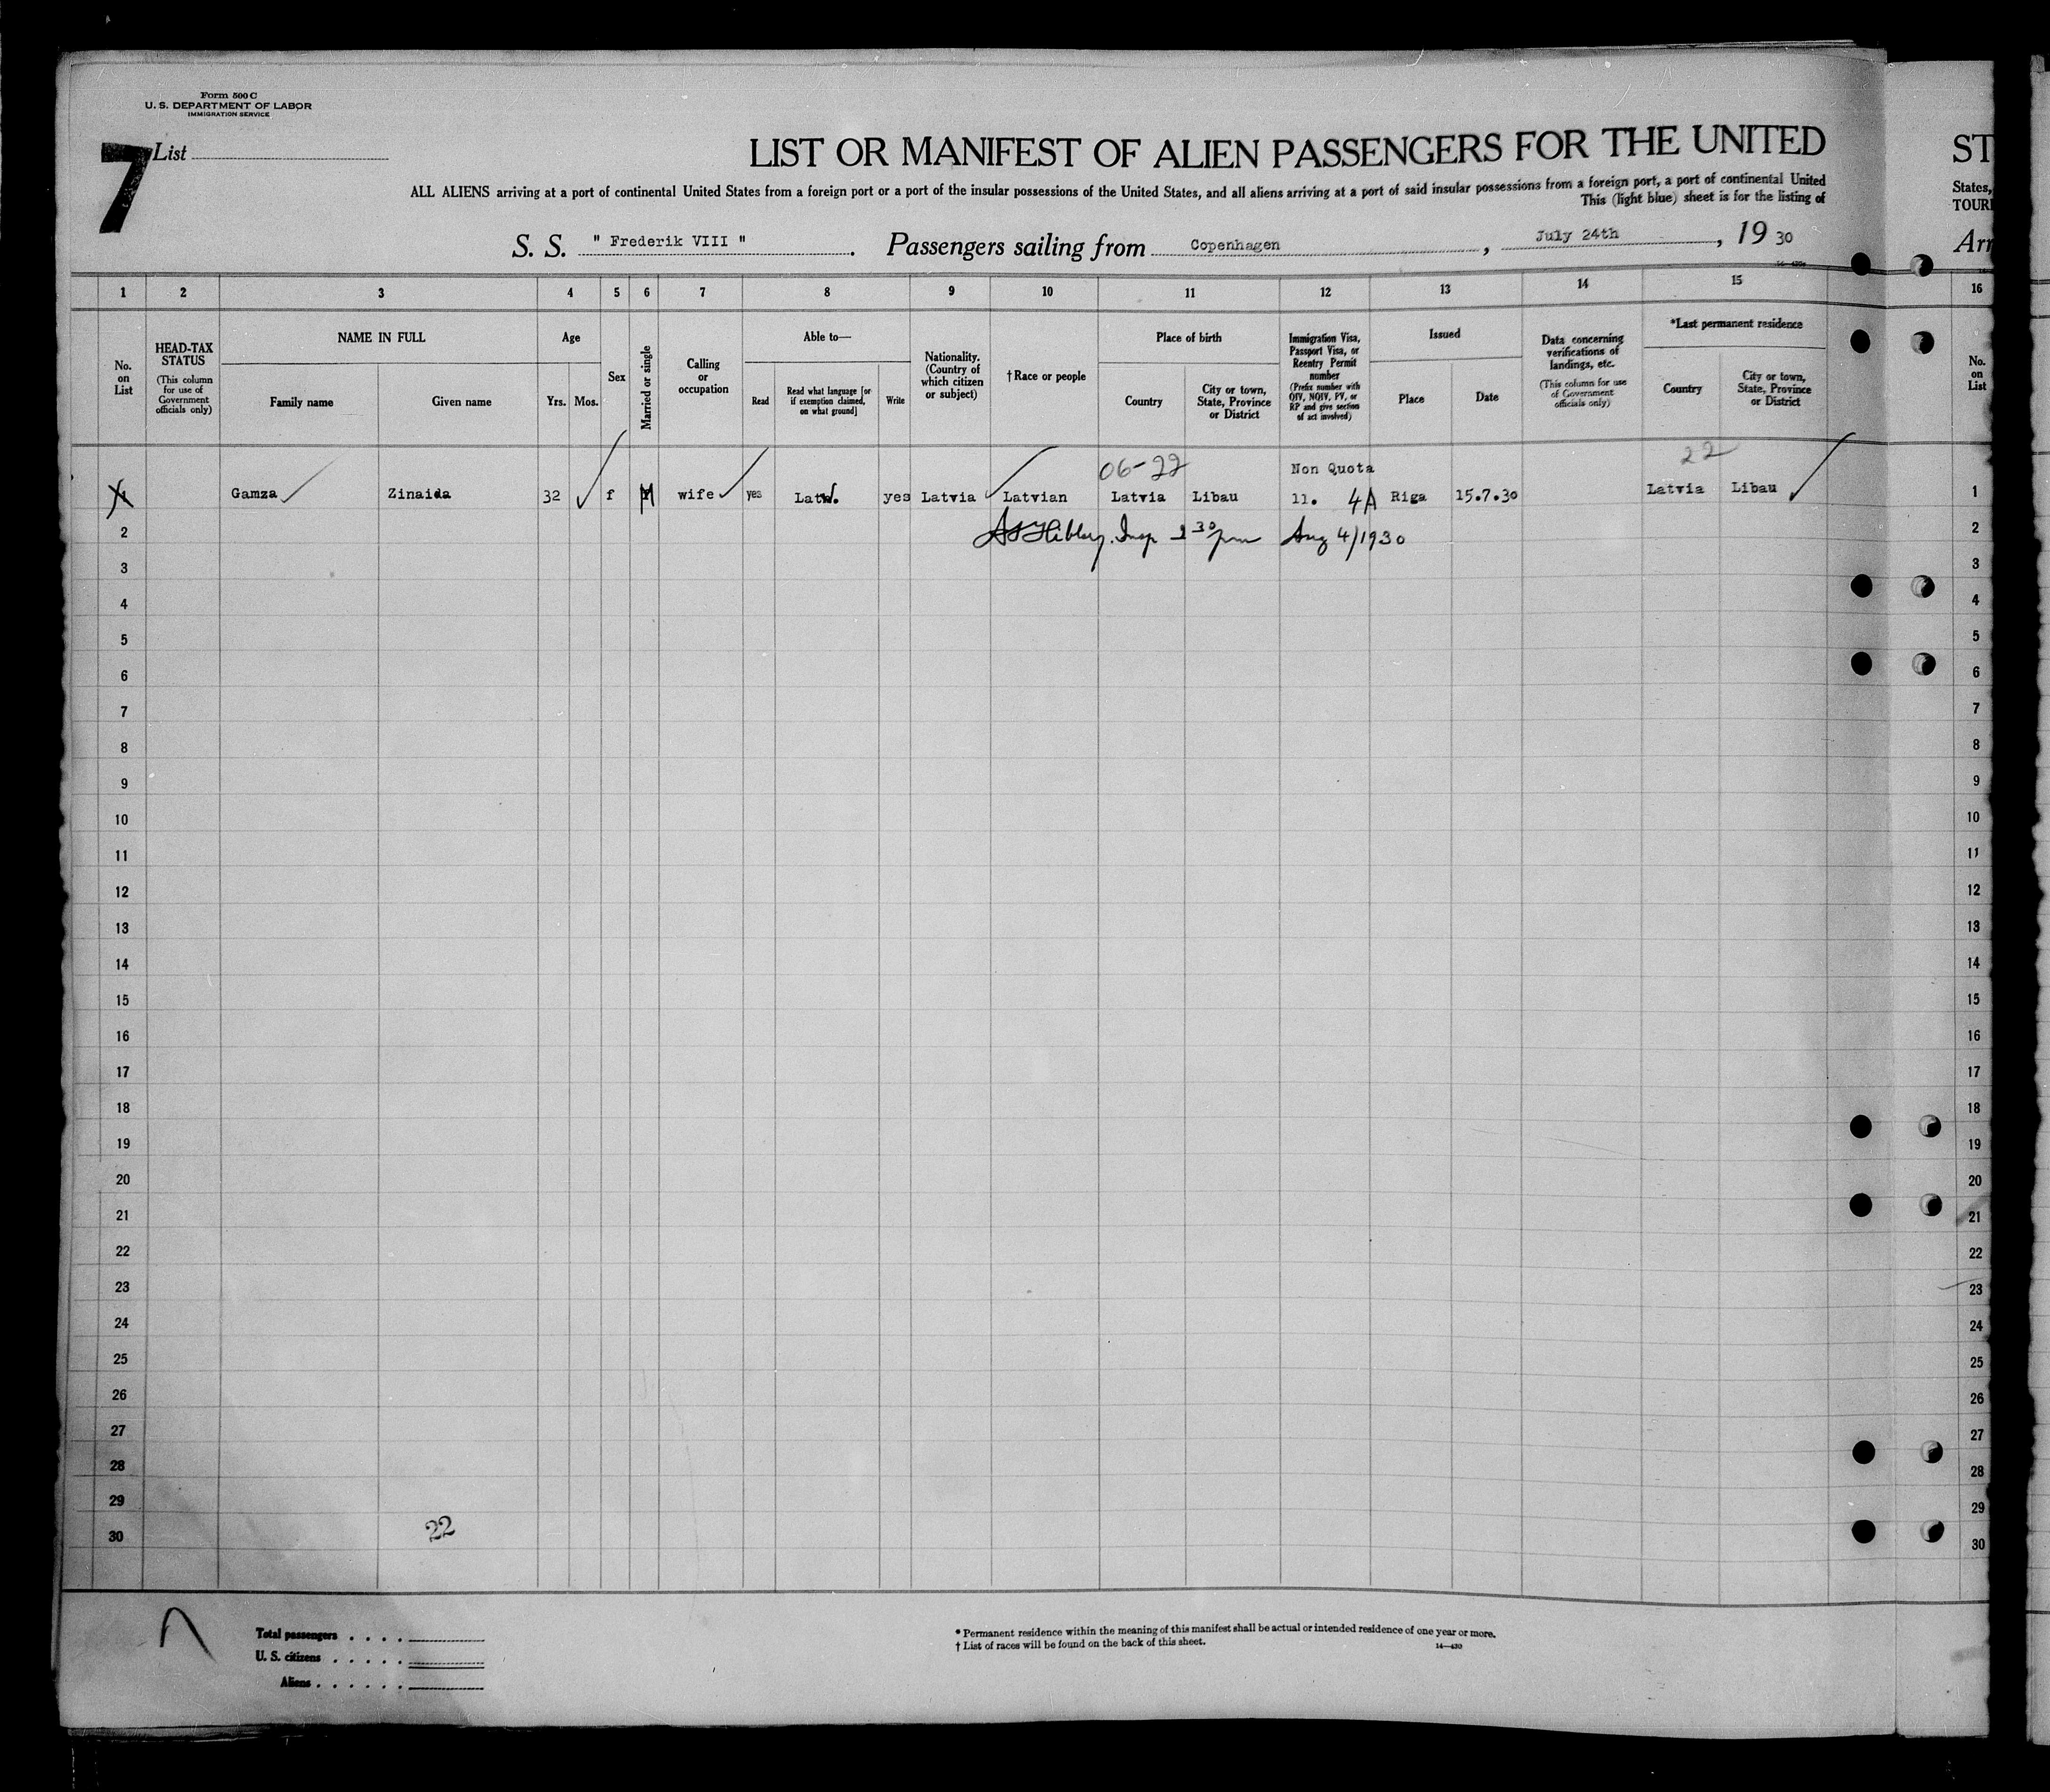 Form 500 C
U. S. DEPARTMENT OF LABOR
IMMIGRATION SERVICE
7
List
LIST OR MANIFEST OF ALIEN PASSENGERS FOR THE UNITED
ALL ALIENS arriving at a port of continental United States from a foreign port or a port of the insular possessions of the United States, and all aliens arriving at a port of said insular possessions from a foreign port, a port of continental United
This (light blue) sheet is for the listing of
S. S. " Frederik VIII ". Passengers sailing from Copenhagen, July 24th, 19 30
ST
States,
TOUR
Arr
1 2 3 4 5 6 7 8 9 10 11 12 13 14 15 16
No. on List
HEAD-TAX STATUS
(This column for use of Government officials only)
NAME IN FULL
Family name
Given name
Age
Yrs. Mos.
Sex
Married or single
Calling or occupation
Able to—
Read
Read what language [or if exemption claimed, on what ground]
Write
Nationality. (Country of which citizen or subject)
† Race or people
Place of birth
Country
City or town, State, Province or District
Immigration Visa, Passport Visa, or Reentry Permit number
(Prefix number with QIV, NQIV, PV, or RP and give section of act involved)
Issued
Place
Date
Data concerning verifications of landings, etc.
(This column for use of Government officials only)
*Last permanent residence
Country
City or town, State, Province or District
No. on List
06-22 Non Quota 22
Gamza Zinaida 32 f M wife yes yes Latvia Latvian Latvia Libau 11. 4A Riga 15.7.30 Latvia Libau 1
2 Insp 2 30 pm Aug 4/1930 2
3 3
4 4
5 5
6 6
7 7
8 8
9 9
10 10
11 11
12 12
13 13
14 14
15 15
16 16
17 17
18 18
19 19
20 20
21 21
22 22
23 23
24 24
25 25
26 26
27 27
28 28
29 29
30 22 30
Total passengers . . . .
U. S. citizens . . . . .
Aliens . . . . . .
* Permanent residence within the meaning of this manifest shall be actual or intended residence of one year or more.
† List of races will be found on the back of this sheet.
14—430